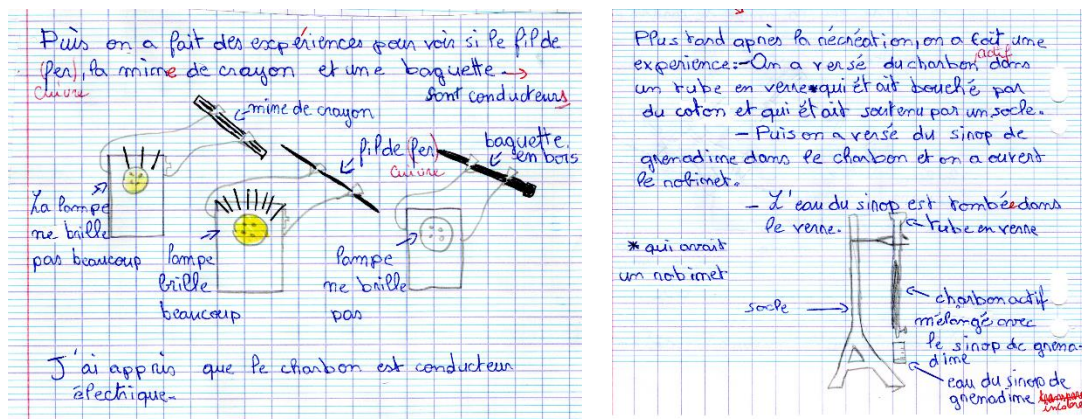 Puis on a fait des expériences pour voir si le fil de
(fer), la mine de crayon et une baguette →
cuivre
sont conducteurs
mine de crayon
fil de (fer)
cuivre
baguette
en bois
La lampe
ne brille
pas beaucoup
lampe
brille
beaucoup
lampe
ne brille
pas
J'ai appris que le charbon est conducteur
électrique.
Plus tard après la récréation, on a fait une
experience:- On a versé du charbon actif dans
un tube en verre*qui était bouché par
du coton et qui était soutenu par un socle.
- Puis on a versé du sirop de
grenadine dans le charbon et on a ouvert
le robinet.
- L'eau du sirop est tombée dans
le verre.
* qui avait
un robinet
tube en verre
socle
charbon actif
mélangé avec
le sirop de grena-
dine
eau du sirop de
grenadine
incolore